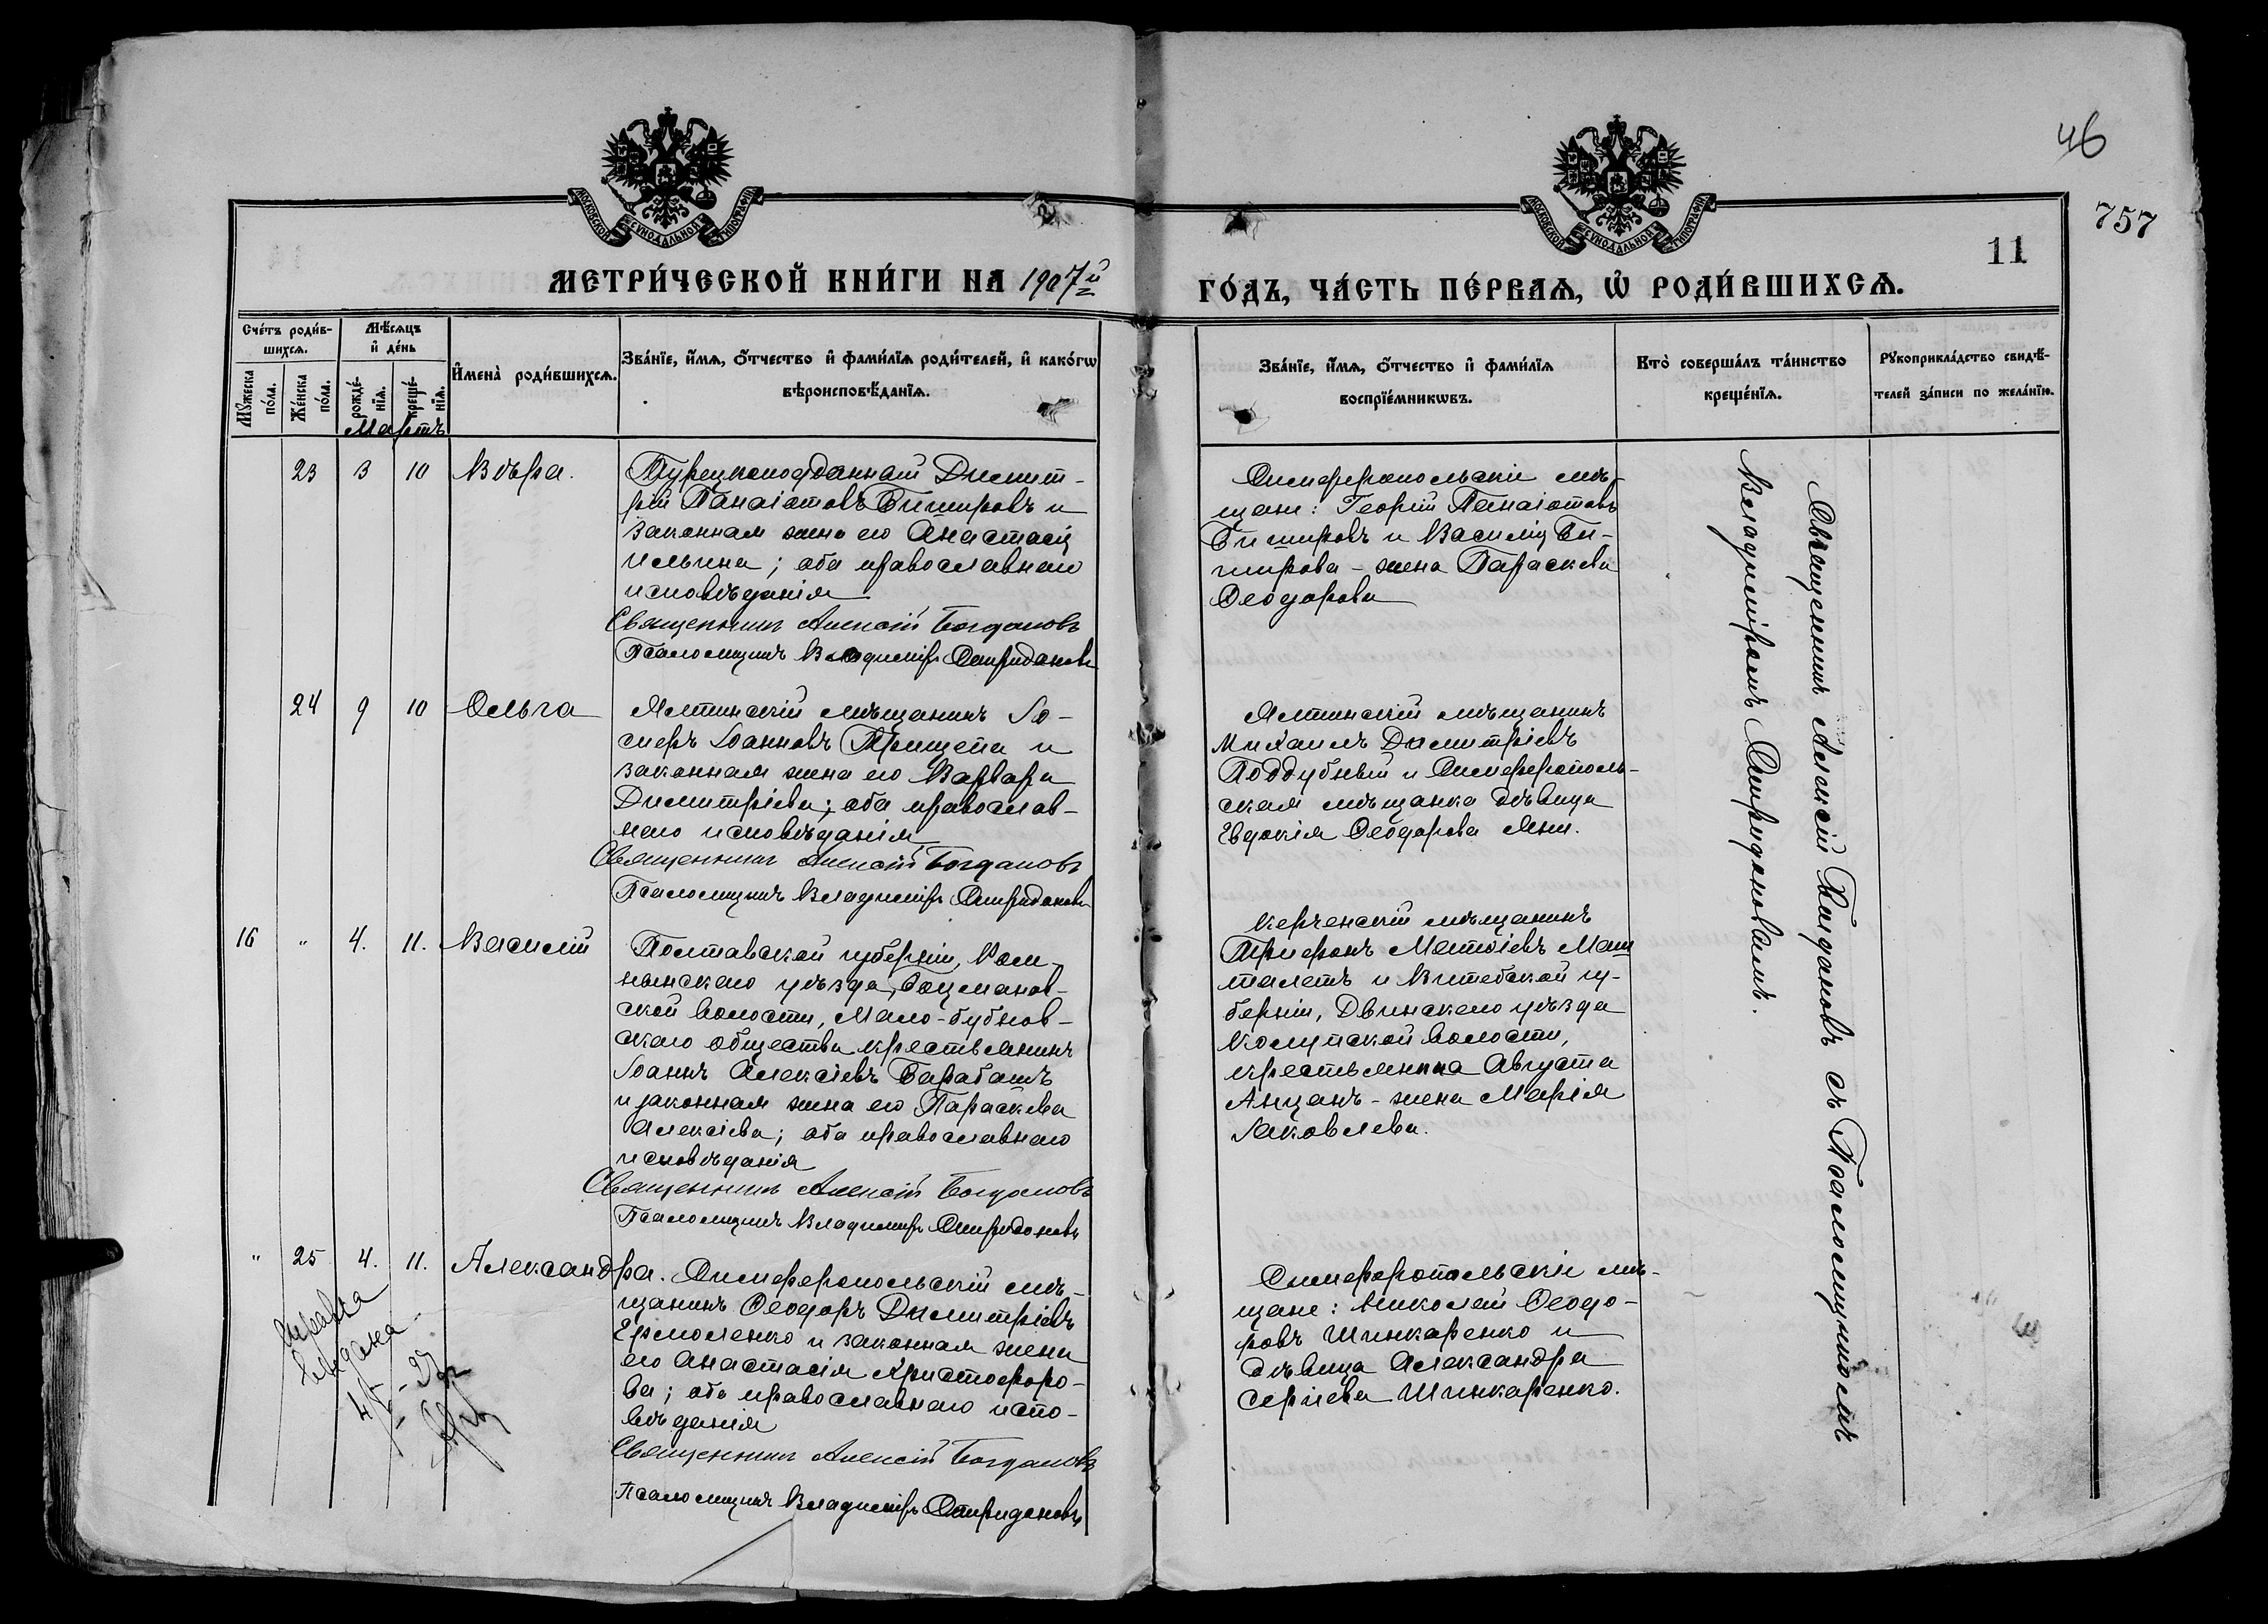 46
757
11
МОСКОВСКОЙ СѴНОДАЛЬНОЙ ТИПОГРАФІИ
МОСКОВСКОЙ СѴНОДАЛЬНОЙ ТИПОГРАФІИ
МЕТРИ́ЧЕСКОЙ КНИ́ГИ НА 1907й
ГО́ДЪ, ЧА́СТЬ ПЕ́РВАѦ, Ѡ҆ РОДИ́ВШИХСѦ.
Сче́тъ роди́вшихсѧ.
Мꙋ́жеска по́ла.
Же́нска по́ла.
Мѣ́сѧцъ и҆ де́нь
рожде́нїѧ.
креще́нїѧ.
И҆мена̀ роди́вшихсѧ.
Зва́нїе, и҆́мѧ, ѻ҆́тчество и҆ фами́лїѧ роди́телей, и҆ како́гѡ
вѣроисповѣ́данїѧ.
Зва́нїе, и҆́мѧ, ѻ҆́тчество и҆ фами́лїѧ
воспрїе́мникѡвъ.
Кто̀ соверша́лъ та́инство
креще́нїѧ.
Рꙋкоприкла́дство свидѣ́-
телей за́писи по жела́нїю.
Мартъ
23 3 10 Вѣра.
Турецкоподданный Димит-
рій Панаіотовъ Бишировъ и
законная жена его Анастасія
Ильина; оба православнаго
исповѣданія
Священникъ Алексій Богдановъ
Псаломщикъ Владиміръ Спиридоновъ
Симферопольскіе мѣ-
щане: Георгій Панаіотовъ
Бишировъ и Василія Би-
широва - жена Параскева
Ѳеодорова
24 9 10 Ольга
Ялтинскій мѣщанинъ Іо-
сифъ Іоанновъ Трищепа и
законная жена его Варвара
Димитріева; оба православ-
наго исповѣданія
Священникъ Алексій Богдановъ
Псаломщикъ Владиміръ Спиридоновъ
Ялтинскій мѣщанинъ
Михаилъ Димитріевъ
Поддубный и Симферополь-
ская мѣщанка дѣвица
Евдокія Ѳеодорова
16 " 4. 11. Василій
Полтавской губерніи, Ром-
нынскаго уѣзда,
ской волости, Мало-бубнов-
скаго общества крестьянинъ
Іоаннъ Алексіевъ Барабашъ
и законная жена его Параскева
Алексіева; оба православнаго
исповѣданія
Священникъ Алексій Богдановъ
Псаломщикъ Владиміръ Спиридоновъ
Керченскій мѣщанинъ
Трифонъ Матѳіевъ Маш
талетъ и Витебской гу-
берніи, Двинскаго уѣзда
Колупской волости,
крестьянина Августа
Анцанъ - жена Марія
Іаковлева.
" 25 4. 11. Александра.
Симферопольскій мѣ-
щанинъ Ѳеодоръ Димитріевъ
Ермоленко и законная жена
его Анастасія Христофоро-
ва; оба православнаго испо-
вѣданія
Священникъ Алексій Богдановъ
Псаломщикъ Владиміръ Спиридоновъ
Симферопольскіе мѣ-
щане: Николай Ѳеодо-
ровъ Шинкаренко и
дѣвица Александра
Сергіева Шинкаренко.
Священникъ Алексій Богдановъ съ Псаломщикомъ
Владиміромъ Спиридоновымъ.